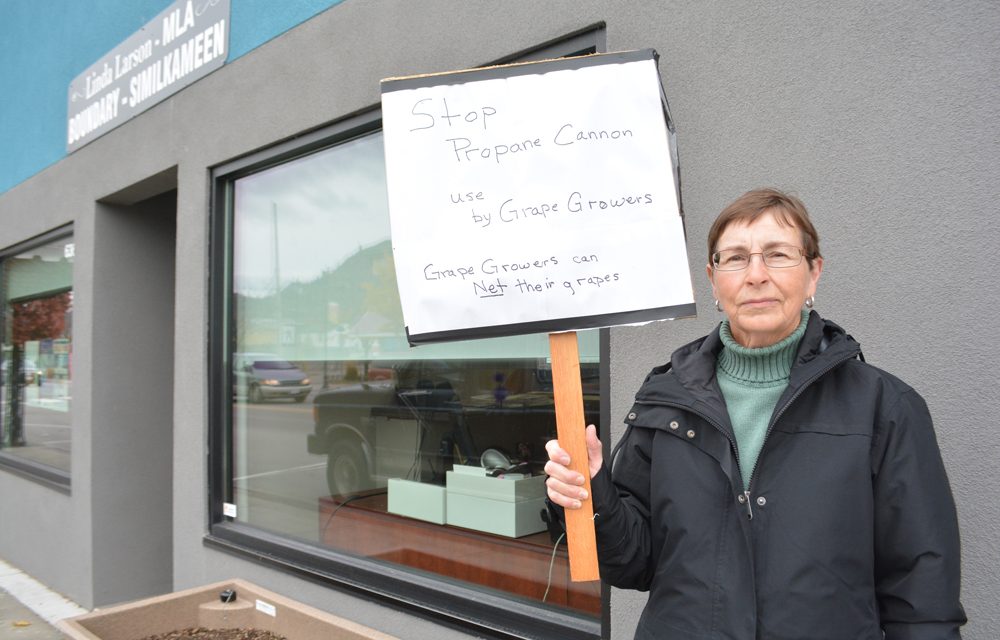 Linda Larson - MLA
BOUNDARY - SIMILKAMEEN
Stop
Propane Cannon
use
by Grape Growers
Grape Growers can
Net their grapes